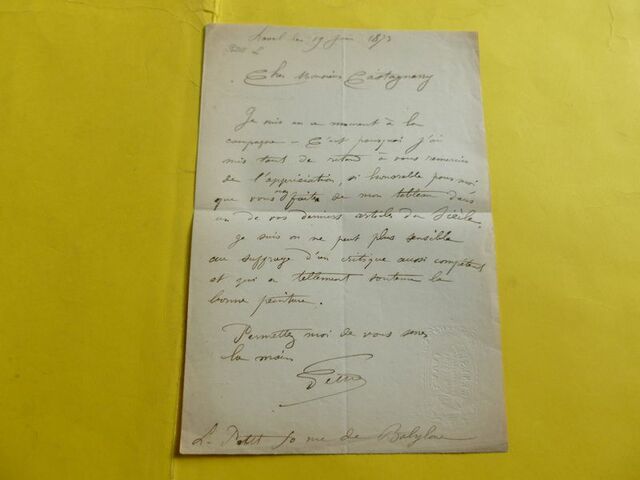 Laval le 19 Juin 1873
Cher Monsieur Castagnary
Je suis en ce moment à la
campagne – C'est pourquoi j'ai
mis tant de retard à vous remercier
de l'appréciation, si honorable pour moi
que vous avez faite de mon tableau dans
un de vos derniers articles du Siècle.
Je suis on ne peut plus sensible
au suffrage d'un critique aussi compétent
et qui a tellement soutenu la
bonne peinture.
Permettez moi de vous serrer
la main
L. Petit 50 rue de Babylone